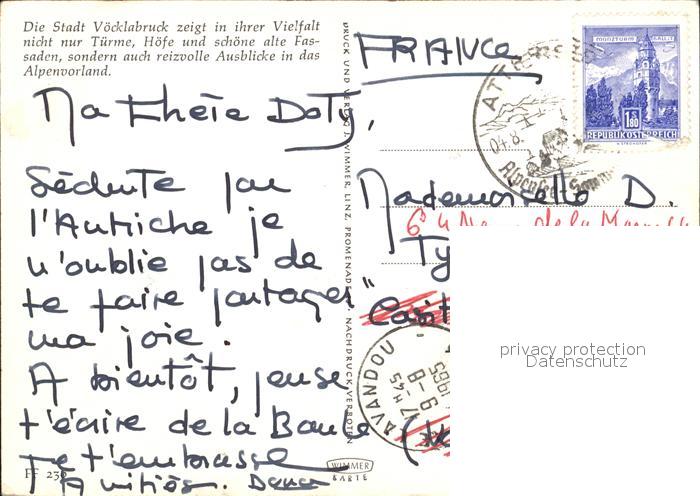 Die Stadt Vöcklabruck zeigt in ihrer Vielfalt
nicht nur Türme, Höfe und schöne alte Fas-
saden, sondern auch reizvolle Ausblicke in das
Alpenvorland.
Ma Chérie Doty,
Séduite par
l'Autriche je
n'oublie pas de
te faire partager
ma joie.
A bientôt, pense
t'écrire de la Baule
Je t'embrasse
Amitiés.
FF 239
DRUCK UND VERLAG J. WIMMER, LINZ, PROMENADE NACHDRUCK VERBOTEN
WIMMER
KARTE
FRANCE
MÜNZTURM
HALL I. T.
1.80
REPUBLIK ÖSTERREICH
04.8.
Mademoiselle D.
de la
Ty
LAVANDOU
17 H 45
9-8
1965
privacy protection
Datenschutz